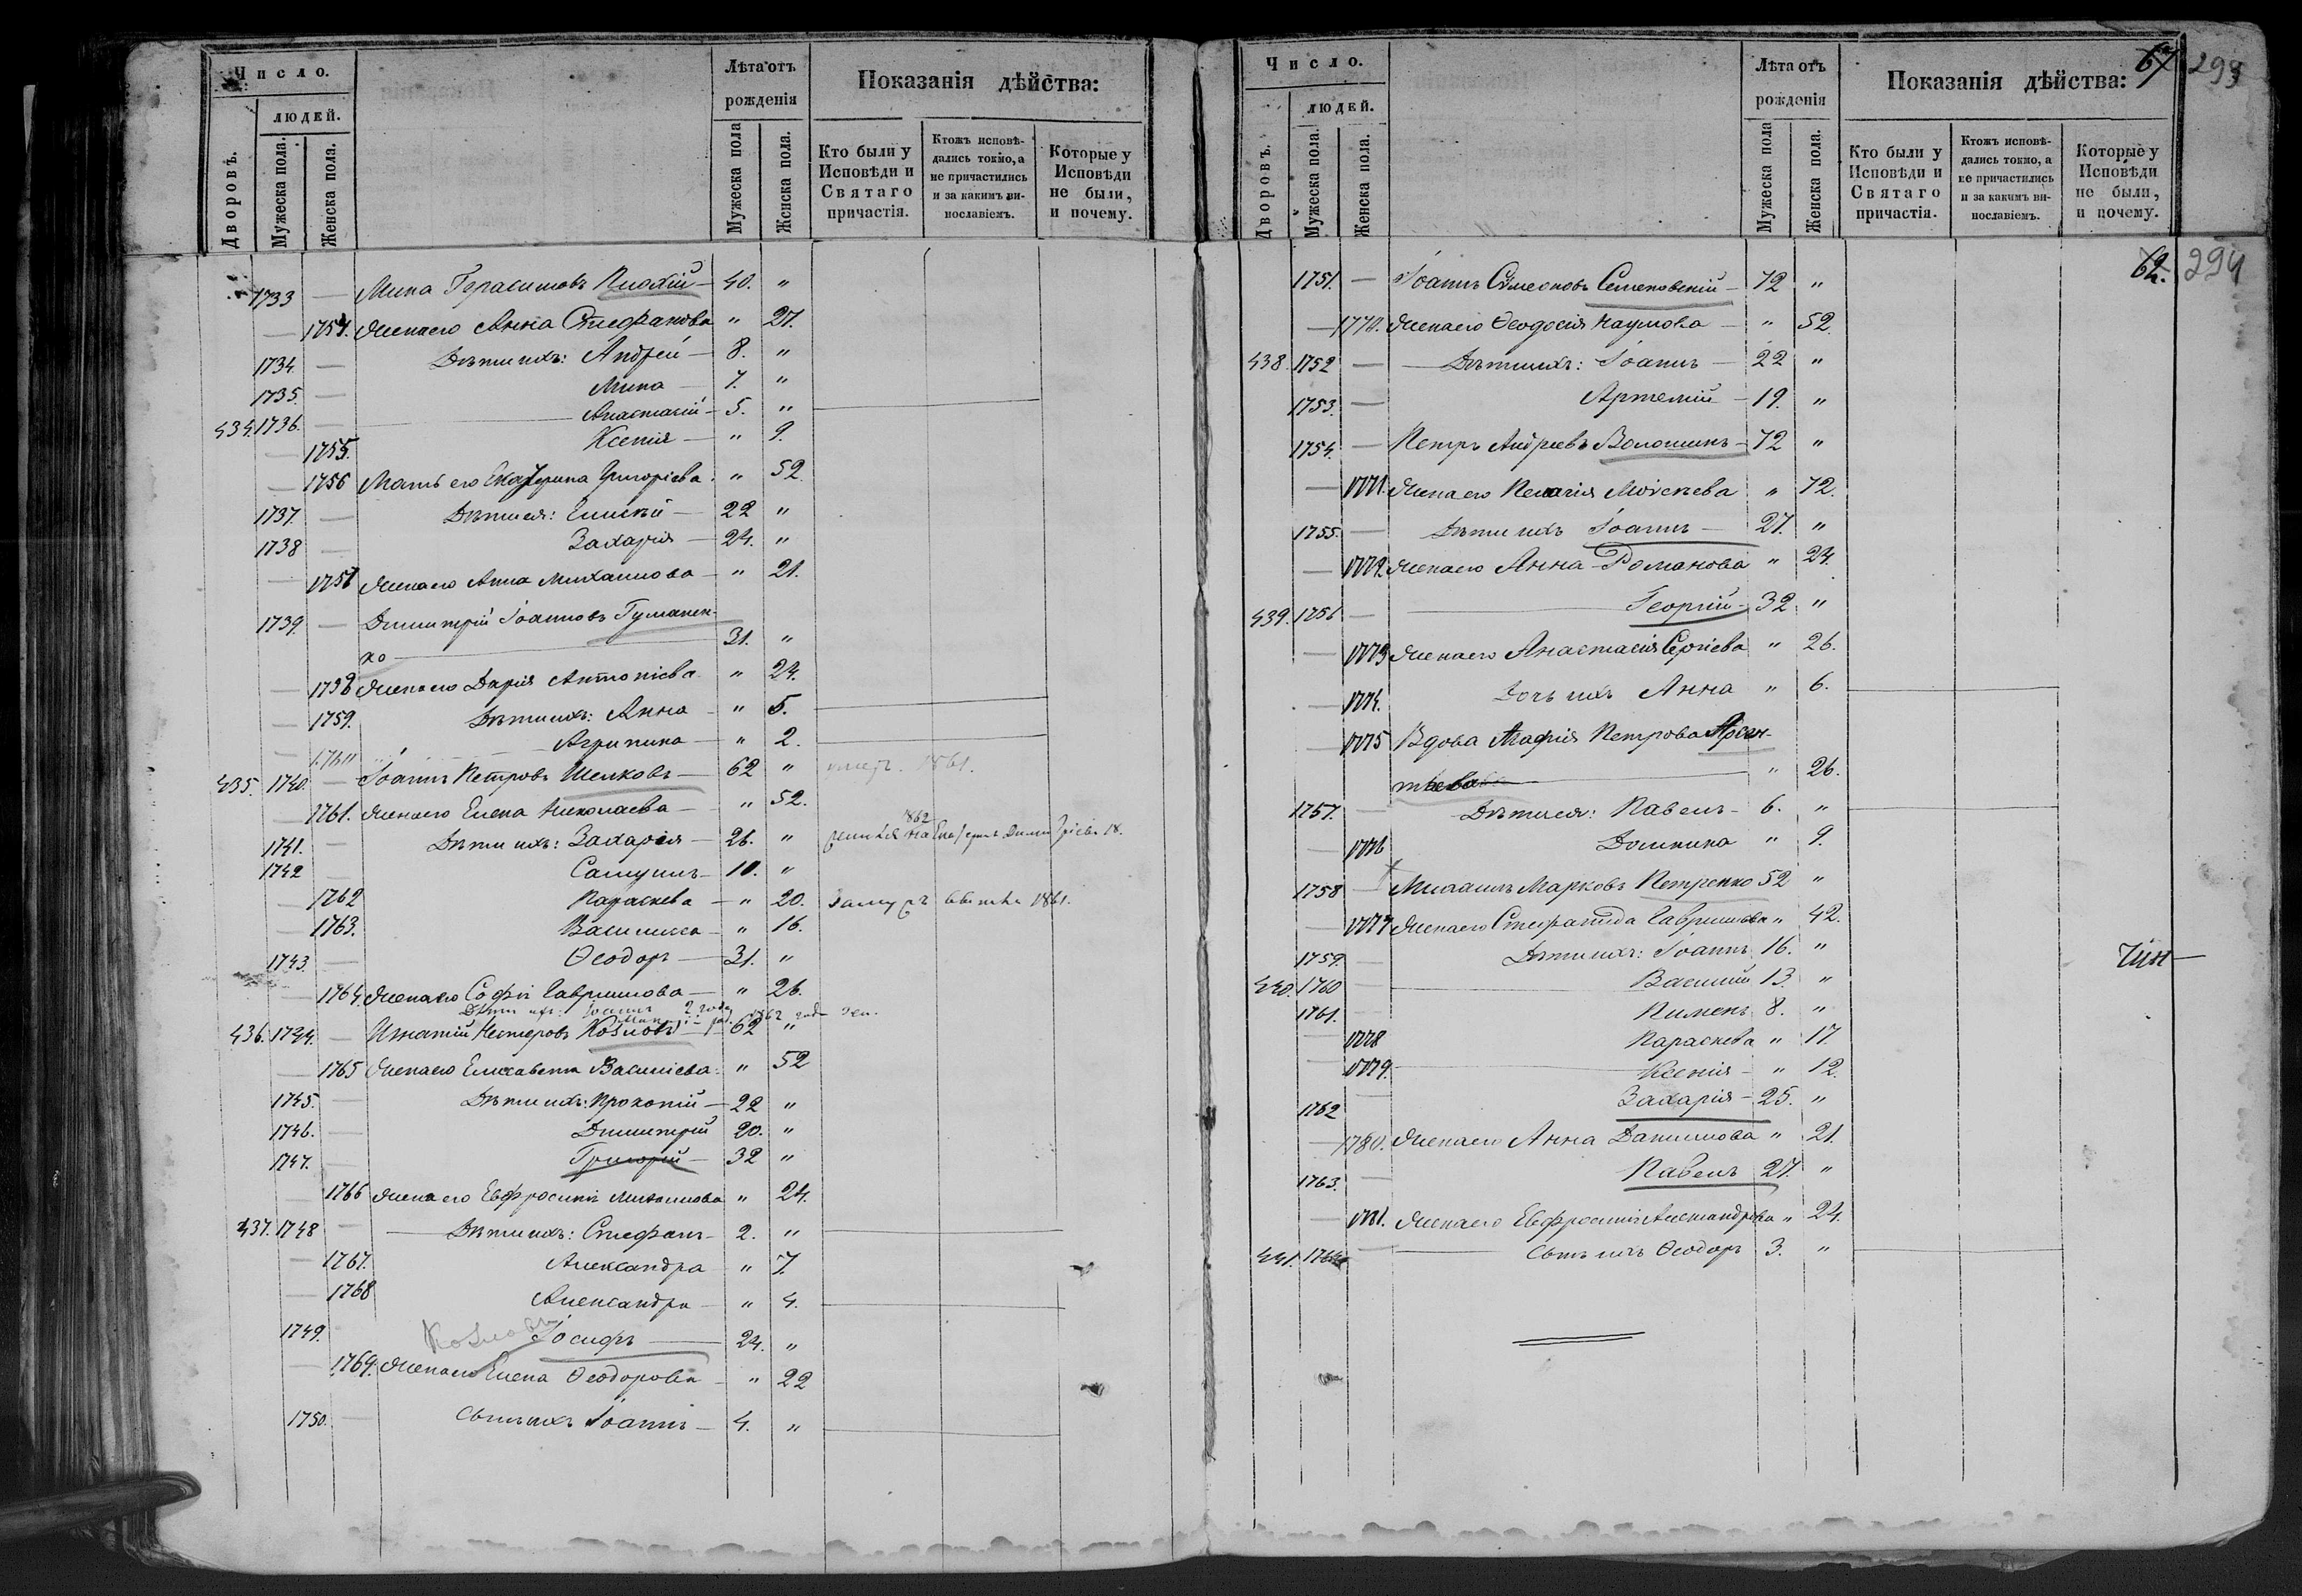 Число.
людей.
Дворовъ.
Мужеска пола.
Женска пола.
Лѣта отъ рожденія
Мужеска пола
Женска пола.
Показанія дѣйства:
Кто были у Исповѣди и Святаго причастія.
Ктожъ исповѣдались токмо, а не причастились и за какимъ винословіемъ.
Которые у Исповѣди не были, и почему.
1733 — Мина Герасимовъ — 40. "
— 1754. Жена его Анна Стефанова " 27.
1734. — Дѣти ихъ: Андрей — 8. "
1735. — Мина — 7. "
434. 1736. — Анастасій — 5. "
— 1755. Ксенія — " 9.
— 1756 Мать его Екатерина Григоріева " 52.
1737. — Дѣти ея: Елисей — 22 "
1738 — Захарія — 24. "
— 1757 Жена его Анна Михаилова — " 21.
1739. — Димитрій Іоанновъ Гуманен-
ко — 31. "
— 1758 Жена его Дарія Антоніева " 24.
— 1759. Дѣти ихъ: Анна — " 5.
— Агрипина — " 2.
435. 1740. — Іоаннъ Петровъ Шелковъ — 62 " 1861.
— 1761. Жена его Елена Николаева — " 52.
1862
1741. — Дѣти ихъ: Захарія — 26. "
1742 — Самуилъ — 10. "
— 1762 Параскева — " 20. 1861.
— 1763. Василисса — " 16.
1743. — Ѳеодоръ — 31. "
— 1764. Жена его Софія Гавриилова — " 26.
Дѣти ихъ: Іоаннъ 2 года
436. 1744. — Игнатій Несторовъ Козловъ — 62 "
— 1765 Жена его Елисавета Василіева " 52
1745. — Дѣти ихъ: Прокопій — 22 "
1746. — Димитрій 20. "
1747. — Григорій — 32 "
— 1766 Жена его Евфросинія Михаилова " 24.
437. 1748 — Дѣти ихъ: Стефанъ — 2. "
— 1767. Александра " 7.
— 1768 Александра — " 4.
1749. Козловъ Іосифъ — 24. "
— 1769. Жена его Елена Ѳеодорова — " 22
1750. — Сынъ ихъ Іоаннъ — 4. "
Число.
людей.
Дворовъ.
Мужеска пола.
Женска пола.
Лѣта отъ рожденія
Мужеска пола
Женска пола.
Показанія дѣйства:
67 293
Кто были у Исповѣди и Святаго причастія.
Ктожъ исповѣдались токмо, а не причастились и за какимъ винословіемъ.
Которые у Исповѣди не были, и почему.
62. 294
1751. — Іоаннъ Симеоновъ Семеновскій — 72 "
— 1770. Жена его Ѳеодосія Наумова — " 52.
438. 1752 — Дѣти ихъ: Іоаннъ — 22 "
1753. — Артемій — 19. "
1754. — Петръ Андреевъ Волошинъ — 72 "
— 1771. Жена его Пелагія Моисеева " 72.
1755. — Дѣти ихъ Іоаннъ — 27. "
— 1772. Жена его Анна Романова " 24.
439. 1756 — Георгій — 32. "
— 1773 Жена его Анастасія Сергіева " 26.
— 1774. Дочь ихъ Анна " 6.
— 1775 Вдова Агафія Петрова
— " 26.
1757. — Дѣти ея: Павелъ — 6. "
— 1776 Домнина " 9.
1758 — Михаилъ Марковъ Петренко 52 "
— 1777 Жена его Стефанида Гавриилова " 42.
1759. — Дѣти ихъ: Іоаннъ 16. "
440. 1760 — Василій 13. "
1761. — Пименъ 8. "
— 1778 Параскева " 17.
— 1779. Ксенія — " 12.
1762 — Захарія — 25. "
— 1780. Жена его Анна Даниилова " 21.
1763. — Павелъ 27. "
— 1781. Жена его Евфросинія Александрова " 24.
441. 1764 — Сынъ ихъ Ѳеодоръ 3. "